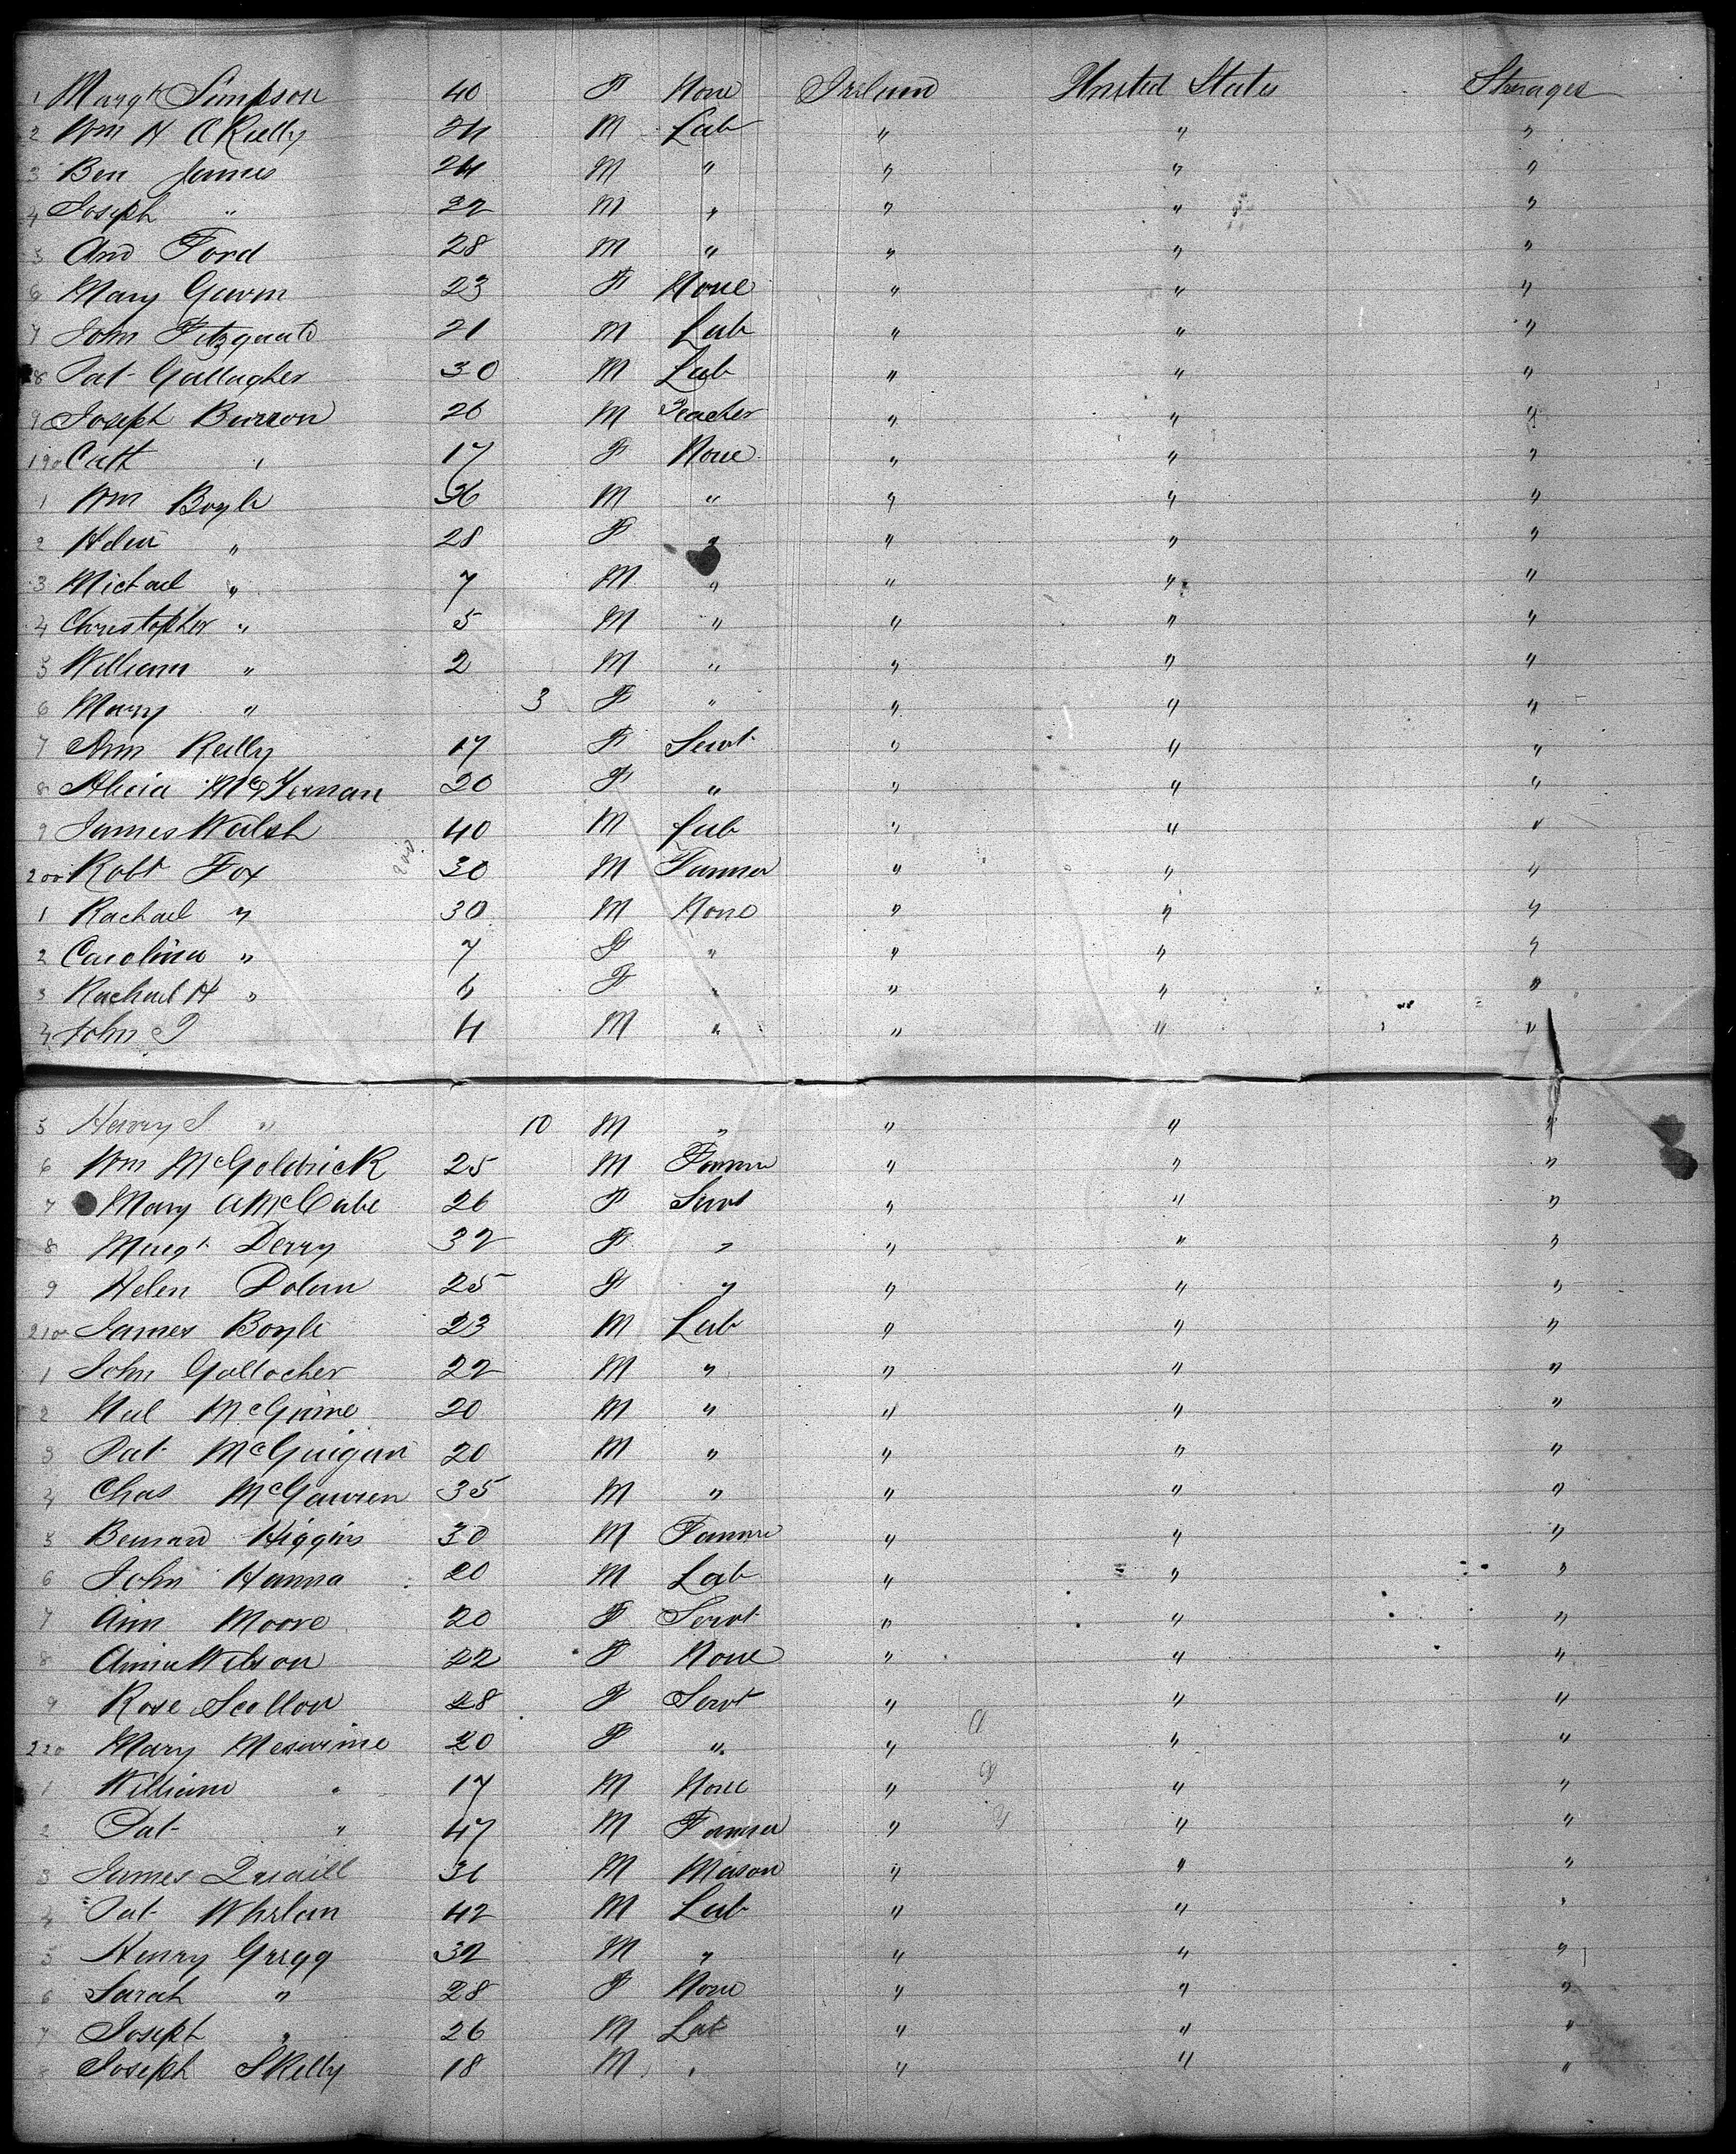 1 Margt Simpson 40 F None Ireland United States Steerage
2 Wm H O Rielly 24 M Lab " " "
3 Ben James 24 M " " " "
4 Joseph " 22 M " " " "
5 And Ford 28 M " " " "
6 Mary 23 F None " " "
7 John Fitzgerald 21 M Lab " " "
8 Pat Gallagher 30 M Lab " " "
9 Joseph Burron 26 M Teacher " " "
190 Cath " 17 F None " " "
1 Wm Boyle 36 M " " " "
2 Helen " 28 F " " " "
3 Michael " 7 M " " " "
4 Christopher " 5 M " " " "
5 William " 2 M " " " "
6 Mary " 3 F " " " "
7 Ann Reilly 17 F Servt " " "
8 Alicia McTernan 20 F " " " "
9 James Walsh 40 M Lab " " "
200 Robt Fox 30 M Farmer " " "
1 Rachael " 30 M None " " "
2 Carolina " 7 F " " " "
3 Rachael H " 6 F " " " "
4 John J 4 M " " " "
5 Henry J " 10 M " " " "
6 Wm McGoldrick 25 M Farmer " " "
7 Mary A McCabe 26 F Servt " " "
8 Margt Derry 32 F " " " "
9 Helen Dolan 25 F " " " "
210 James Boyle 23 M Lab " " "
1 John Gallocher 22 M " " " "
2 McGuire 20 M " " " "
3 Pat McGuigan 20 M " " " "
4 Chas McGauren 35 M " " " "
5 Bernard Higgins 30 M Farmer " " "
6 John Hanna 20 M Lab " " "
7 Ann Moore 20 F Servt " " "
8 Annie Wilson 22 F None " " "
9 Rose Scollon 28 F Servt " " "
220 Mary 20 F " " " "
1 William " 17 M None " " "
2 Pat " 47 M Farmer " " "
3 James 31 M Mason " " "
4 Pat Whelan 42 M Lab " " "
5 Henry Gregg 32 M " " " "
6 Sarah " 28 F None " " "
7 Joseph " 26 M Lab " " "
8 Joseph Skelly 18 M " " " "